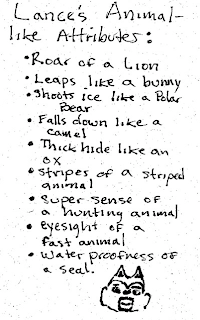 Lance's Animal-
like Attributes:
• Roar of a Lion
• Leaps like a bunny
• Shoots ice like a Polar
Bear
• Falls down like a
camel
• Thick hide like an
ox
• Stripes of a striped
animal
• Super sense of
a hunting animal
• eyesight of a
fast animal
• Water proofness of
a seal.